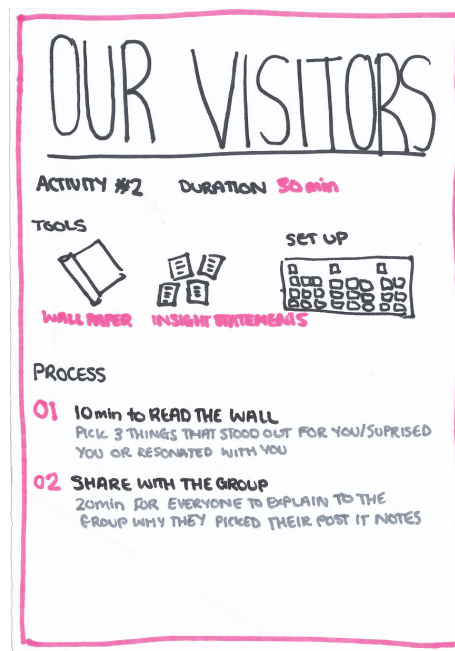 OUR VISITORS
ACTIVITY #2 DURATION 30 min
TOOLS
SET UP
WALL PAPER INSIGHT STATEMENTS
PROCESS
01 10 min to READ THE WALL
PICK 3 THINGS THAT STOOD OUT FOR YOU/SUPRISED
YOU OR RESONATED WITH YOU
02 SHARE WITH THE GROUP
20min FOR EVERYONE TO EXPLAIN TO THE
GROUP WHY THEY PICKED THEIR POST IT NOTES